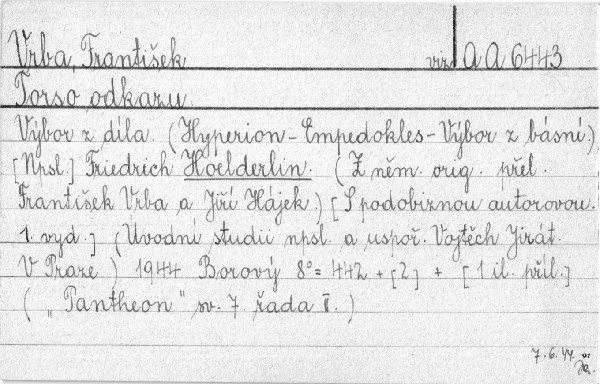 Vrba, František viz AA 6443
Torso odkazu
Výbor z díla. (Hyperion - Empedokles - Výbor z básní.)
[Npsl.] Friedrich Hoelderlin. (Z něm. orig. přel.
František Vrba a Jiří Hájek) [S podobiznou autorovou.
1. vyd.] (Úvodní studii npsl. a uspoř. Vojtěch Jirát.
V Praze) 1944 Borový 8° = 442 + [2] + [1 il. příl.]
("Pantheon" sv. 7 řada II.)
7.6.47